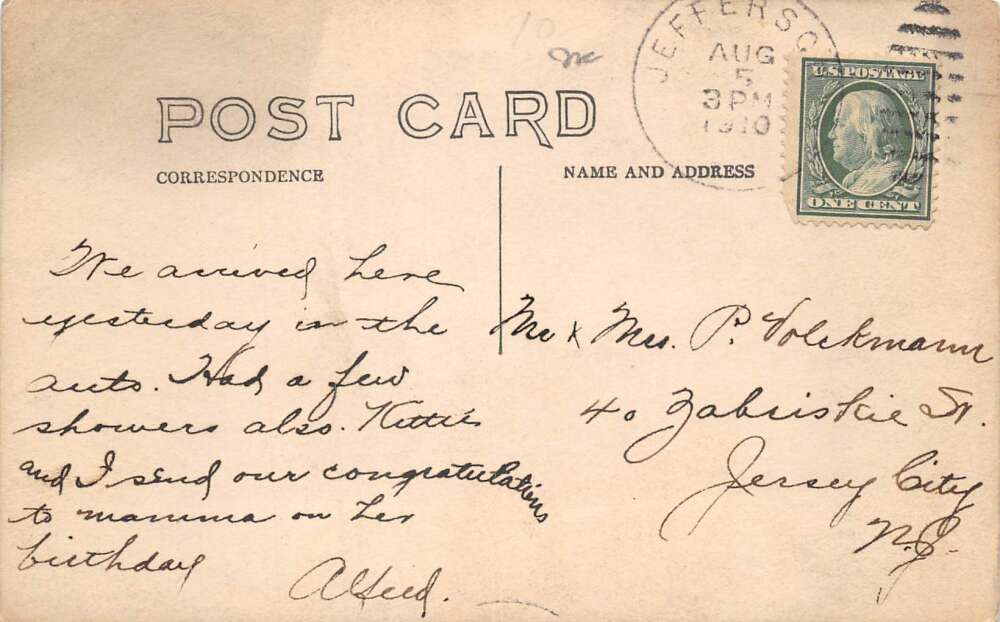 JEFFERSO
AUG
5
3 PM
1910
U.S. POSTAGE
ONE CENT
10
POST CARD
CORRESPONDENCE
NAME AND ADDRESS
We arrived here
yesterday in the
auto. Had a few
showers also. Kittie
and I send our congratulations
to mamma on her
birthday
Alfred.
Mr & Mrs. P. Volckmann
40 Zabriskie St.
Jersey City
N.J.